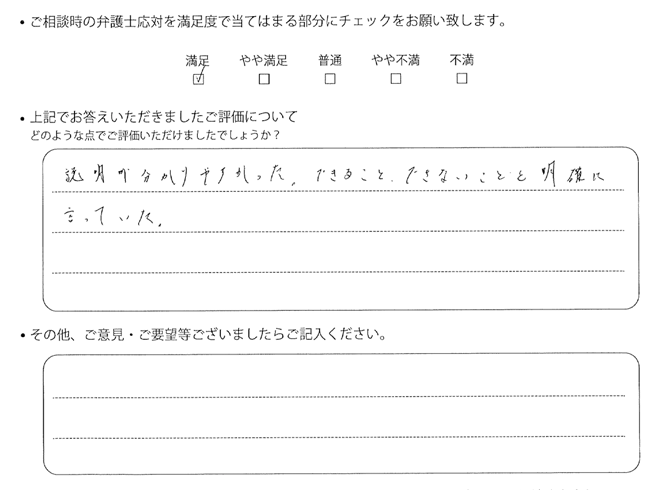 • ご相談時の弁護士応対を満足度で当てはまる部分にチェックをお願い致します。
満足 やや満足 普通 やや不満 不満
☑ ☐ ☐ ☐ ☐
• 上記でお答えいただきましたご評価について
どのような点でご評価いただけましたでしょうか？
説明が分かりやすかった。できること、できないことを明確に
言っていた。
• その他、ご意見・ご要望等ございましたらご記入ください。